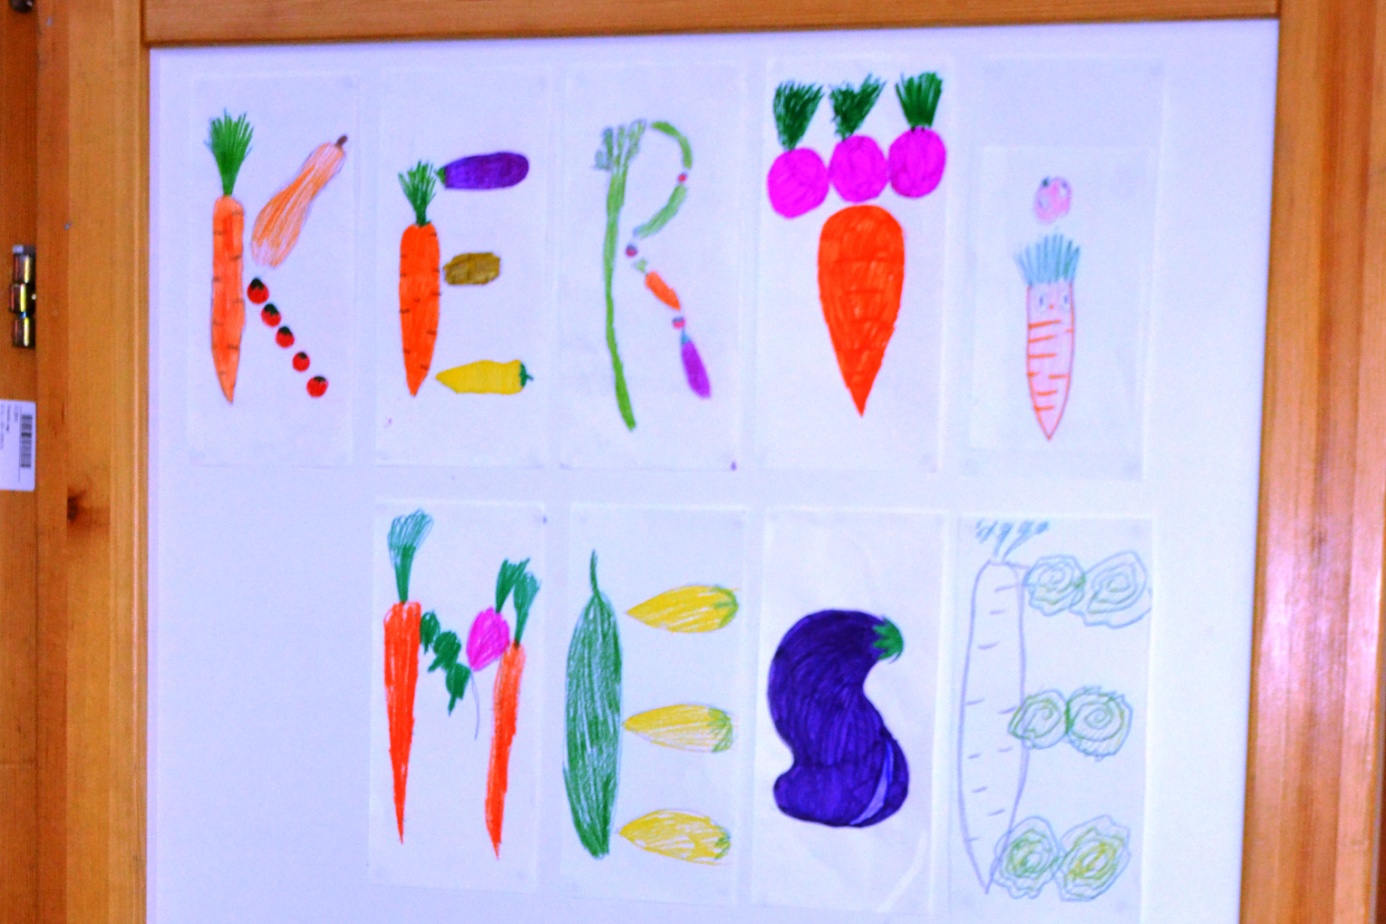 KERTi
MESE